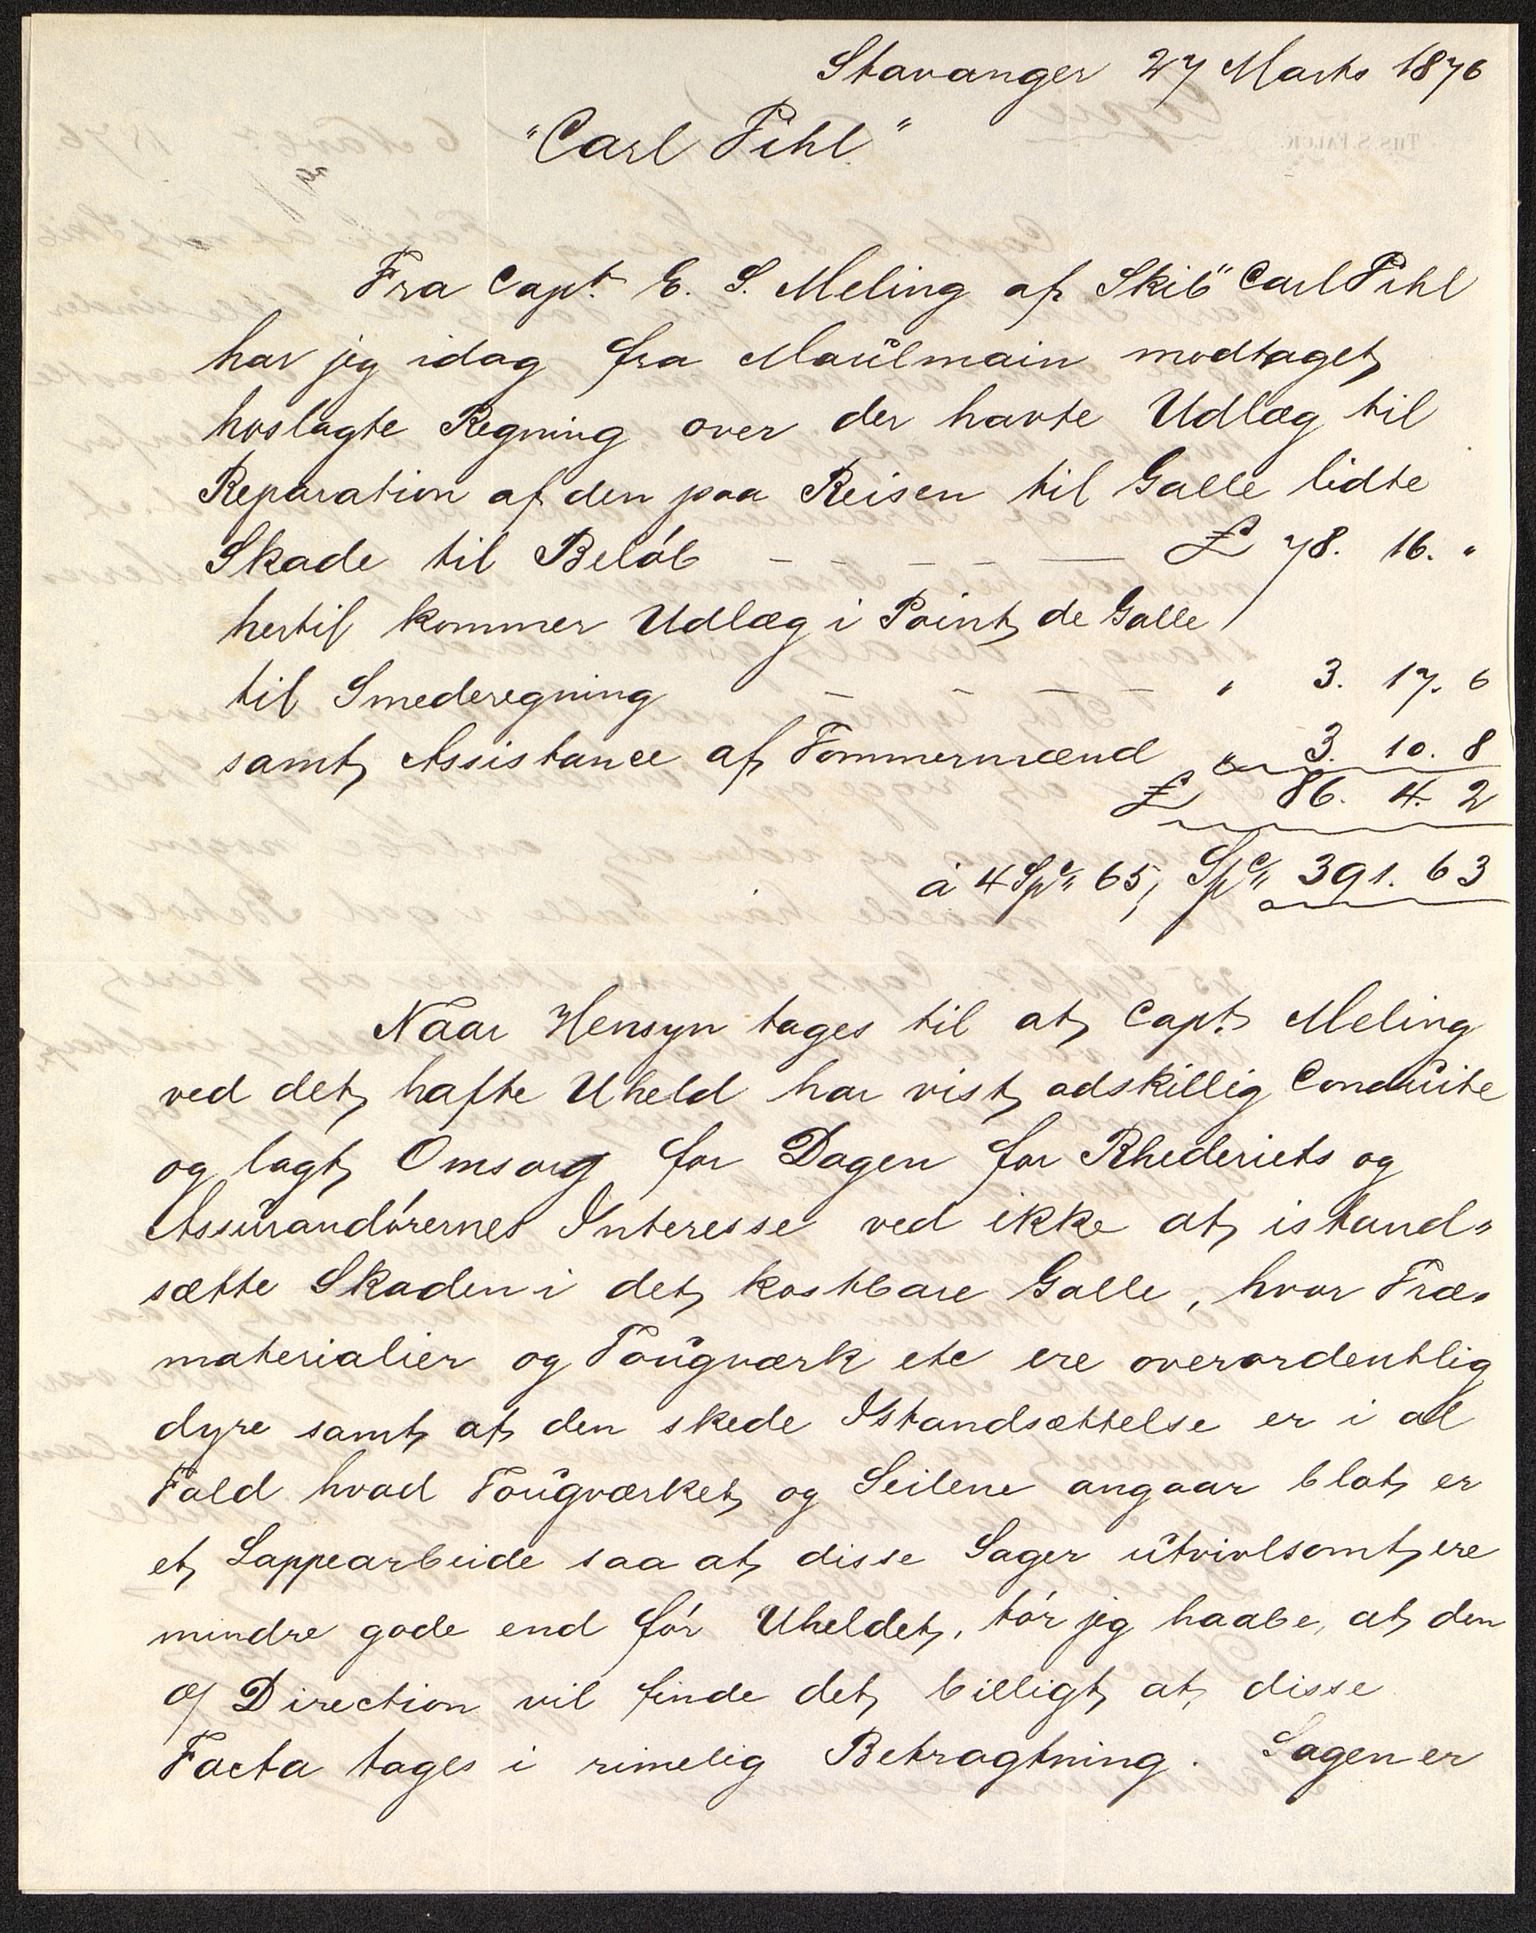 Stavanger 27 Marts 1876
"Carl Pihl"
Fra Capt. E. S. Meling af Skib "Carl Pihl
har jeg idag fra Maulmain modtaget
hoslagte Regning over der havte Udlæg til
Reparation af den paa Reisen til Galle lidte
Skade til Beløb — — — — — £ 78. 16. "
hertil kommer Udlæg i Point de Galle
til Smederegning — — — — " 3. 17. 6
samt Assistance af Tømmermænd " 3. 10. 8
£ 86. 4. 2
à 4 Spd 65, Spd 391. 63
Naar Hensyn tages til at Capt. Meling
ved det hafte Uheld har vist adskillig Conduite
og lagt Omsorg for Dagen for Rhederiets og
Assurandørernes Interesse ved ikke at istand-
sætte Skaden i det kostbare Galle, hvor Træ-
materialier og Tougværk etc ere overordentlig
dyre samt at den skede Istandsættelse er i al
Fald hvad Tougværket og Seilene angaar blot er
et Lappearbeide saa at disse Sager utvivlsomt ere
mindre gode end før Uheldet, tør jeg haabe, at den
Direction vil finde det billigt at disse
Facta tages i rimelig Betragtning. Sagen er